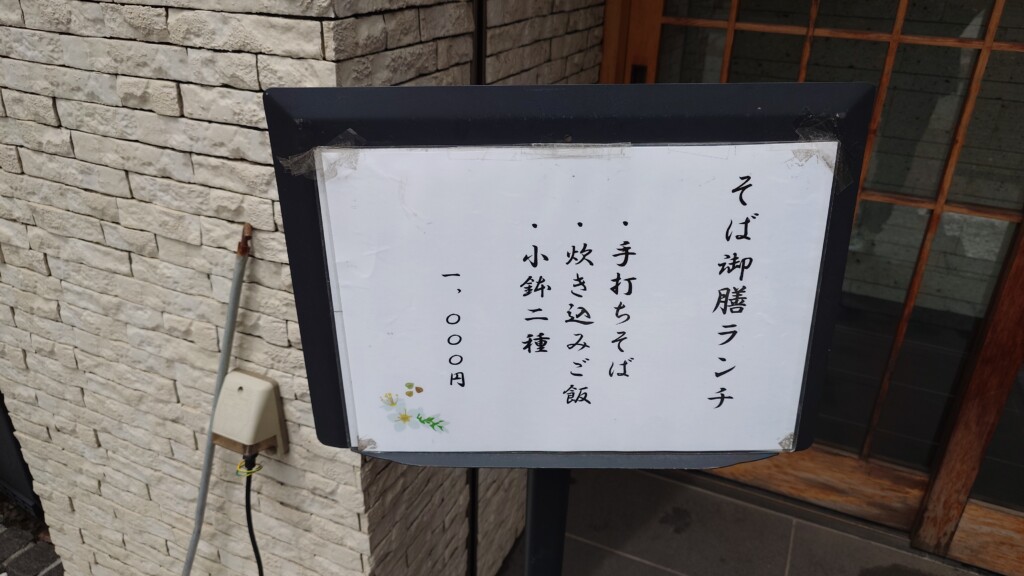 そば御膳ランチ
・手打ちそば
・炊き込みご飯
・小鉢二種
一、〇〇〇円